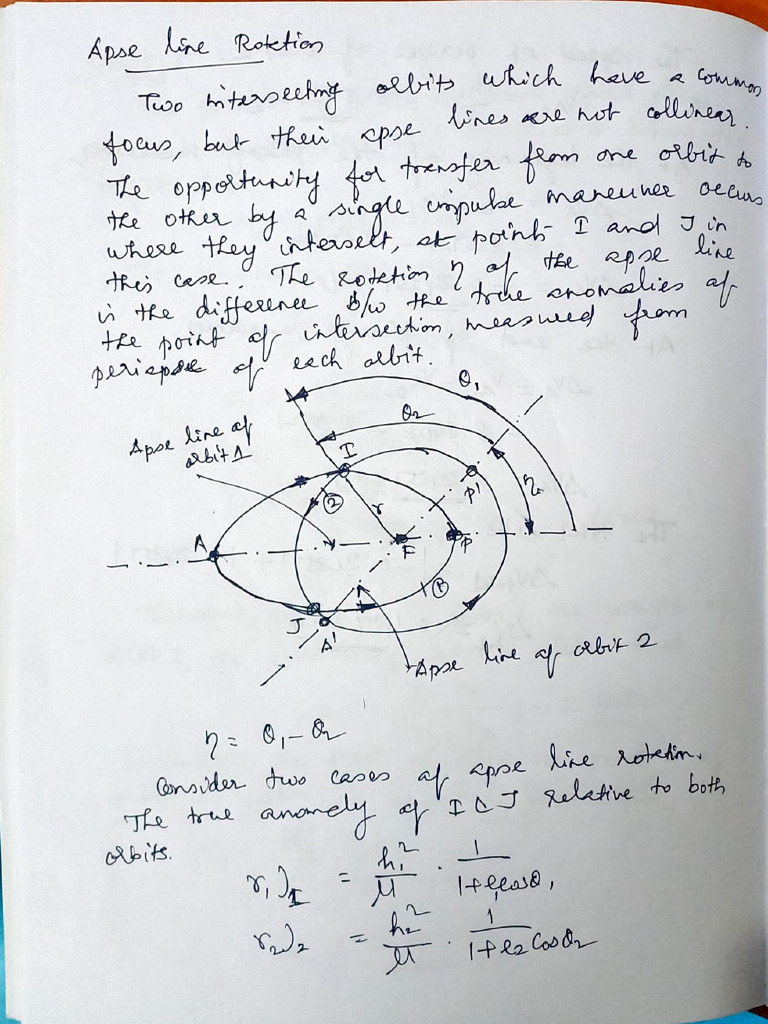 Apse line Rotation
Two intersecting orbits which have a common
focus, but their apse lines are not collinear.
The opportunity for transfer from one orbit to
the other by a single impulse maneuver occurs
where they intersect, at points I and J in
this case. The rotation η of the apse line
is the difference b/w the true anomalies of
the point of intersection, measured from
periapse of each orbit.
θ₁
θ₂
Apse line of
orbit 1
I
②
r
P'
η
A
F
P
①
J
A'
Apse line of orbit 2
η = θ₁ - θ₂
Consider two cases of apse line rotation.
The true anomaly of I & J relative to both
orbits.
r₁)_I = h₁²/μ · 1/(1+e₁cosθ₁
r₂)₂ = h₂²/μ · 1/(1+e₂ Cosθ₂